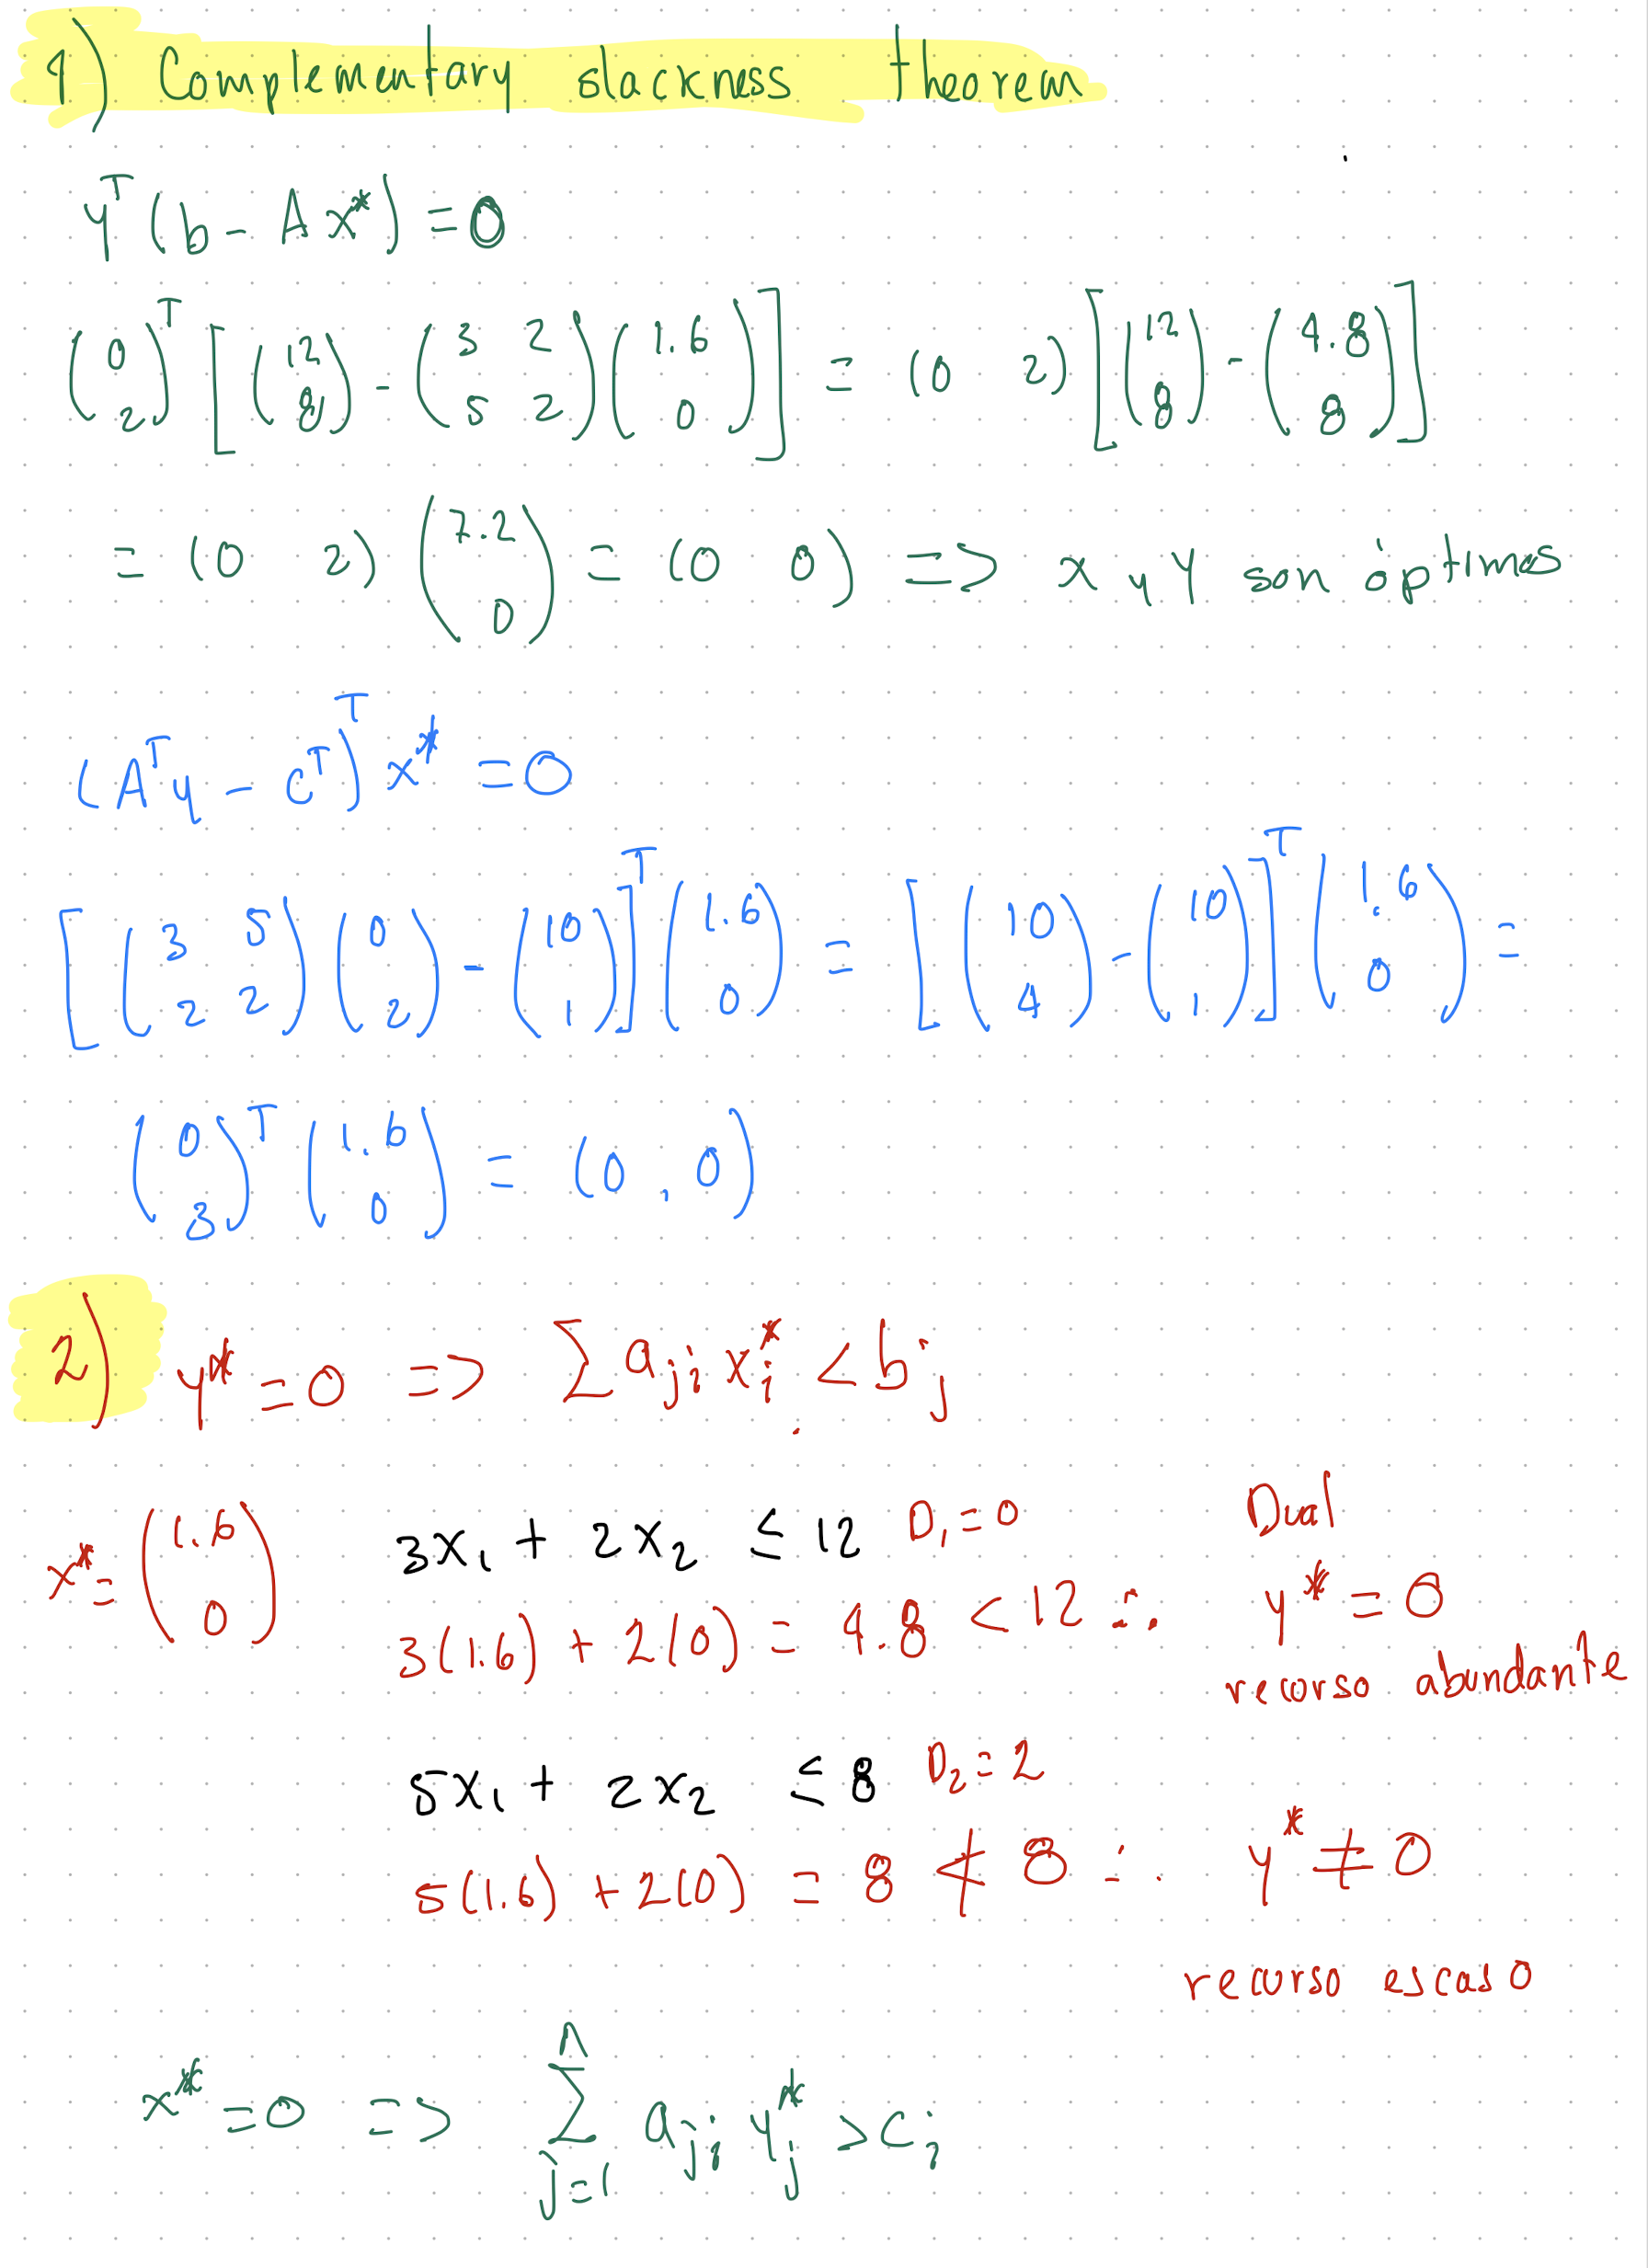 1) Complementary slackness theorem
Y^T (b - Ax*) = 0
(0 2)^T [(12 8) - (3 2 5 2)(1.6 0)] = (0 2)[(12 8) - (4.8 8)]
= (0 2) (7.2 0) = (0 0) => x y Y son óptimos
(A^T y - c^T)^T x* = 0
[(3 5 2 2)(0 2) - (10 1)]^T (1.6 0) = [(10 4) - (10 1)]^T (1.6 0) =
(0 3)^T (1.6 0) = (0, 0)
2) y* = 0 => Σ a_ji x_i* < b_j
x* = (1.6 0)
3x₁ + 2x₂ ≤ 12 D₁ = 0 Dual
3(1.6) + 2(0) = 4.8 < 12 ∴ y* = 0
recurso abundante
5x₁ + 2x₂ ≤ 8 D₂ = 2
5(1.6) + 2(0) = 8 ≮ 8 ∴ y* ≠ 0
recurso escaso
x* = 0 => Σ_{j=1}^n a_ji y_j* > c_i